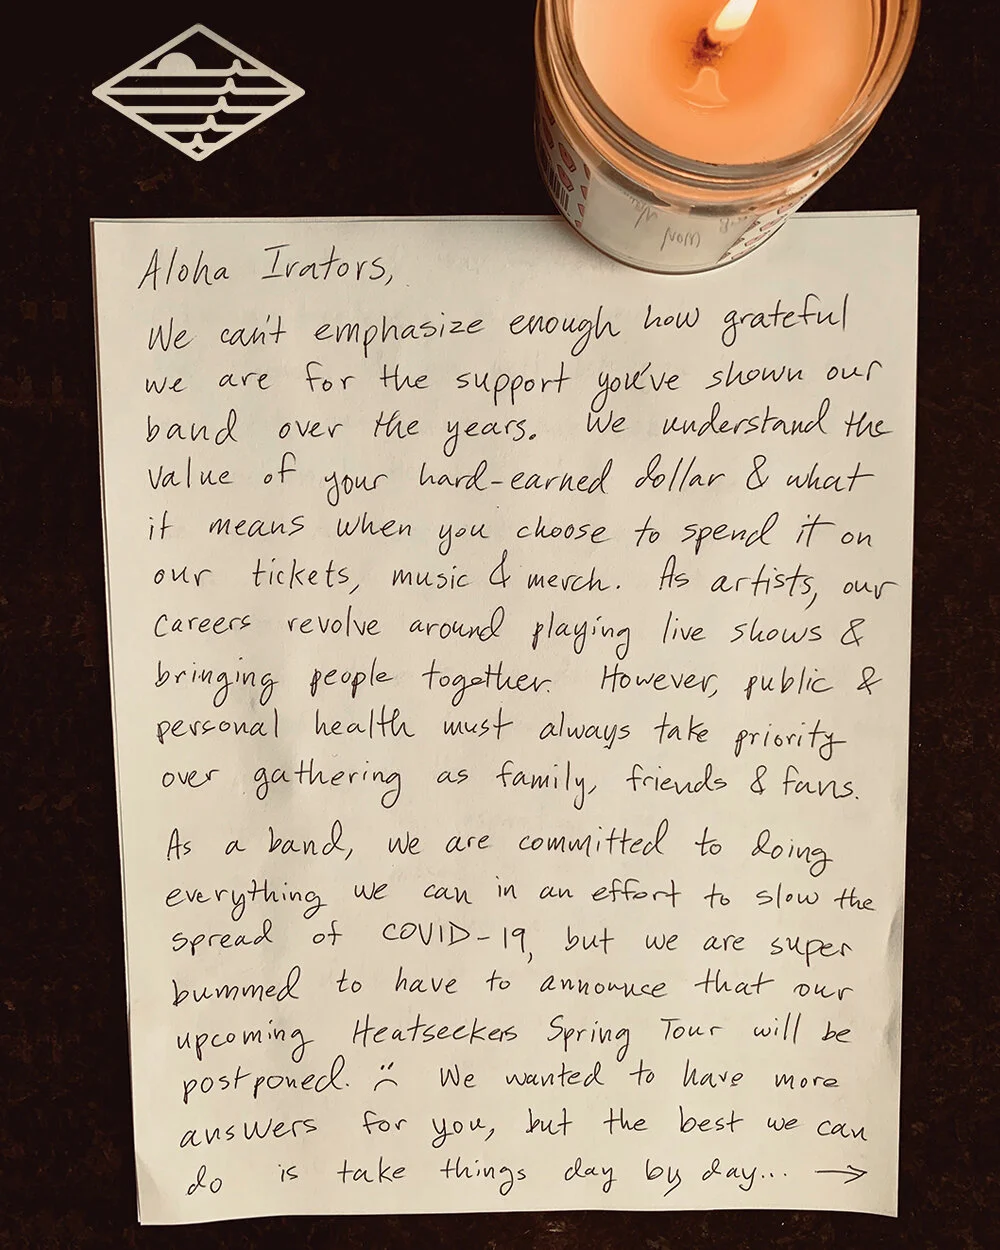 Aloha Irators,
We can't emphasize enough how grateful
we are for the support you've shown our
band over the years. We understand the
value of your hard-earned dollar & what
it means when you choose to spend it on
our tickets, music & merch. As artists, our
careers revolve around playing live shows &
bringing people together. However, public &
personal health must always take priority
over gathering as family, friends & fans.
As a band, we are committed to doing
everything we can in an effort to slow the
spread of COVID-19, but we are super
bummed to have to announce that our
upcoming Heatseekers Spring Tour will be
postponed. :( We wanted to have more
answers for you, but the best we can
do is take things day by day... →